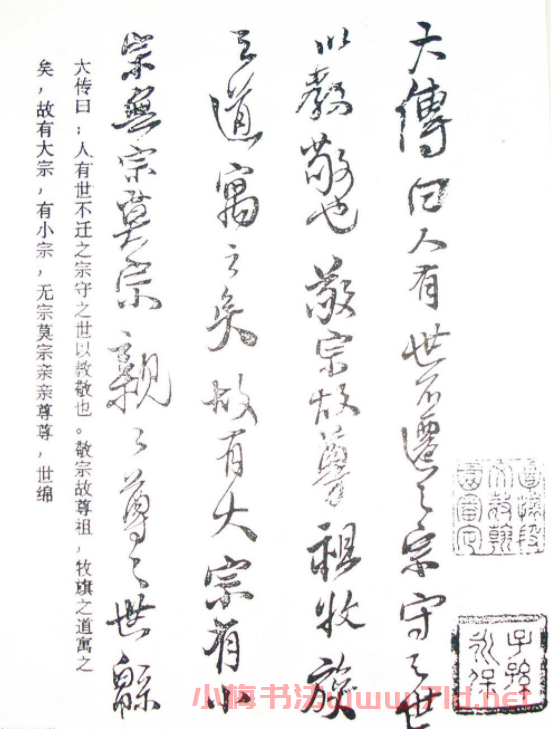 大傳曰人有世不遷之宗守之世
以教敬也敬宗故尊祖牧族
之道寓之矣故有大宗有小
宗無宗莫宗親々尊々世緜
大传曰：人有世不迁之宗守之世以教敬也。敬宗故尊祖，牧旗之道寓之
矣，故有大宗，有小宗，无宗莫宗亲亲尊尊，世绵
子孫
永保
小梅书法www.7ld.net